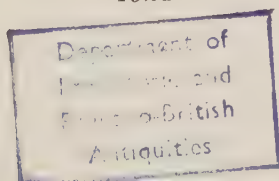 Department of
and
Romano-British
Antiquities